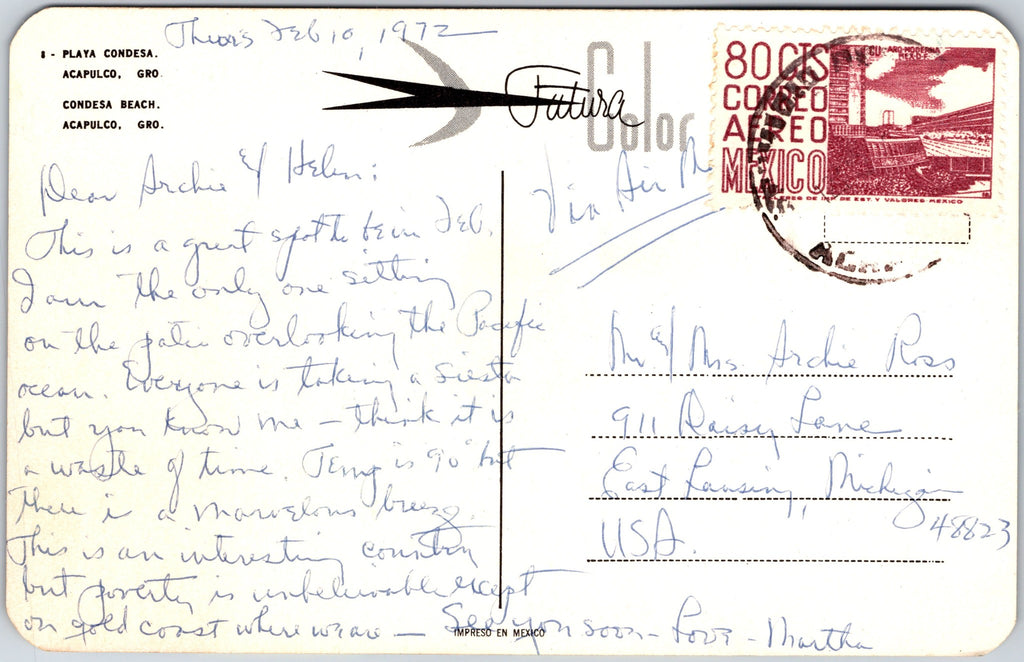 Thurs Feb 10, 1972
8 - PLAYA CONDESA.
ACAPULCO, GRO.
CONDESA BEACH.
ACAPULCO, GRO.
Futura
Color
80 CTS
CORREO
AEREO
MEXICO
CU. ARQ. MODERNA
MEX. D.F.
DE IMP. DE EST. Y VALORES MEXICO
Via Air
Dear Archie & Helen:
This is a great spot to be in Feb.
I am the only one sitting
on the patio overlooking the Pacific
ocean. Everyone is taking a siesta
but you know me – think it is
a waste of time. Temp is 90° but
there is a marvelous breeze.
This is an interesting country
but poverty is unbelievable except
on gold coast where we are – See you soon – Love – Martha
Mr & Mrs. Archie Ross
911 Daisy Lane
East Lansing, Michigan
48823
USA.
IMPRESO EN MEXICO